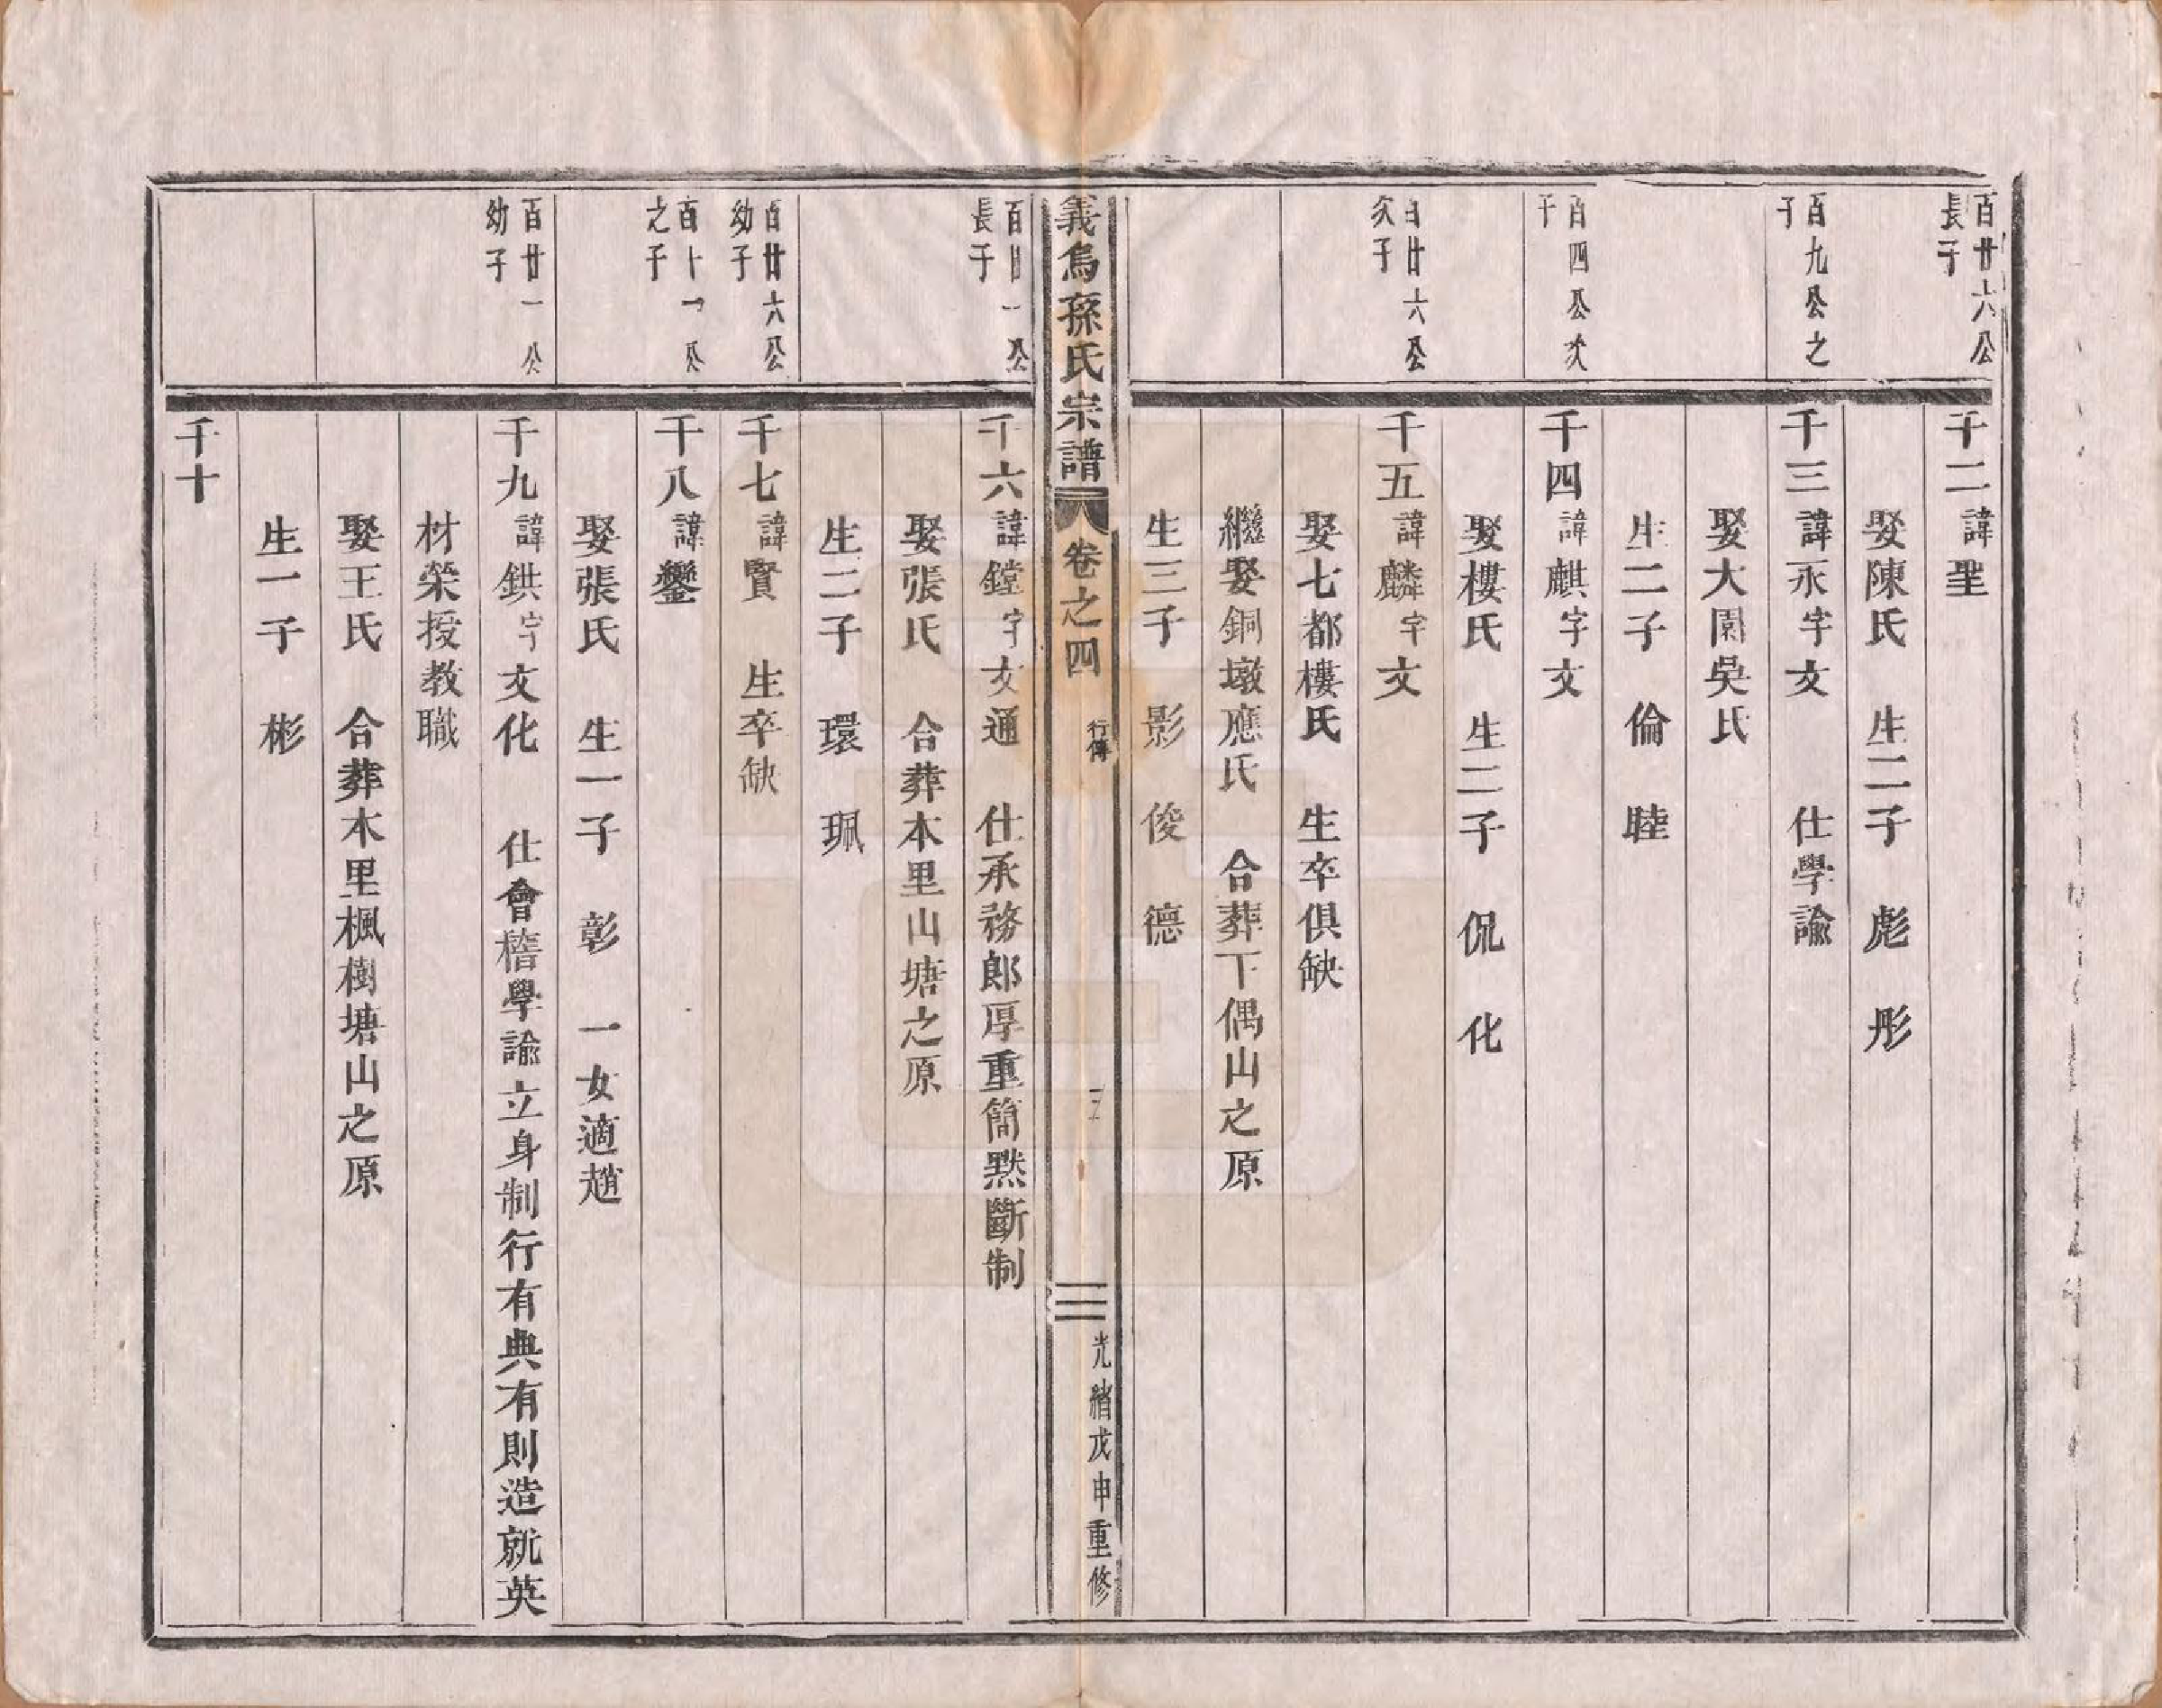 百廿六公
長子
千二諱聖
娶陳氏 生二子 彪 彤
百九公之
子
千三諱永字文 仕學諭
娶大園吳氏
生二子 倫 睦
百四公次
子
千四諱麒字文
娶樓氏 生二子 侃 化
百廿六公
次子
千五諱麟字文
娶七都樓氏 生卒俱缺
繼娶銅墩應氏 合葬下偶山之原
生三子 影 俊 德
義烏孫氏宗譜 卷之四 行傳 三 光緒戊申重修
百廿一公
長子
千六諱鏜字文通 仕承務郎厚重簡默斷制
娶張氏 合葬本里山塘之原
生二子 環 珮
百廿六公
幼子
千七諱賢 生卒缺
百十一公
之子
千八諱鑾
娶張氏 生一子 彰 一女適趙
百廿一公
幼子
千九諱鉷字文化 仕會稽學諭立身制行有典有則造就英
材榮授教職
娶王氏 合葬本里楓樹塘山之原
生一子 彬
千十